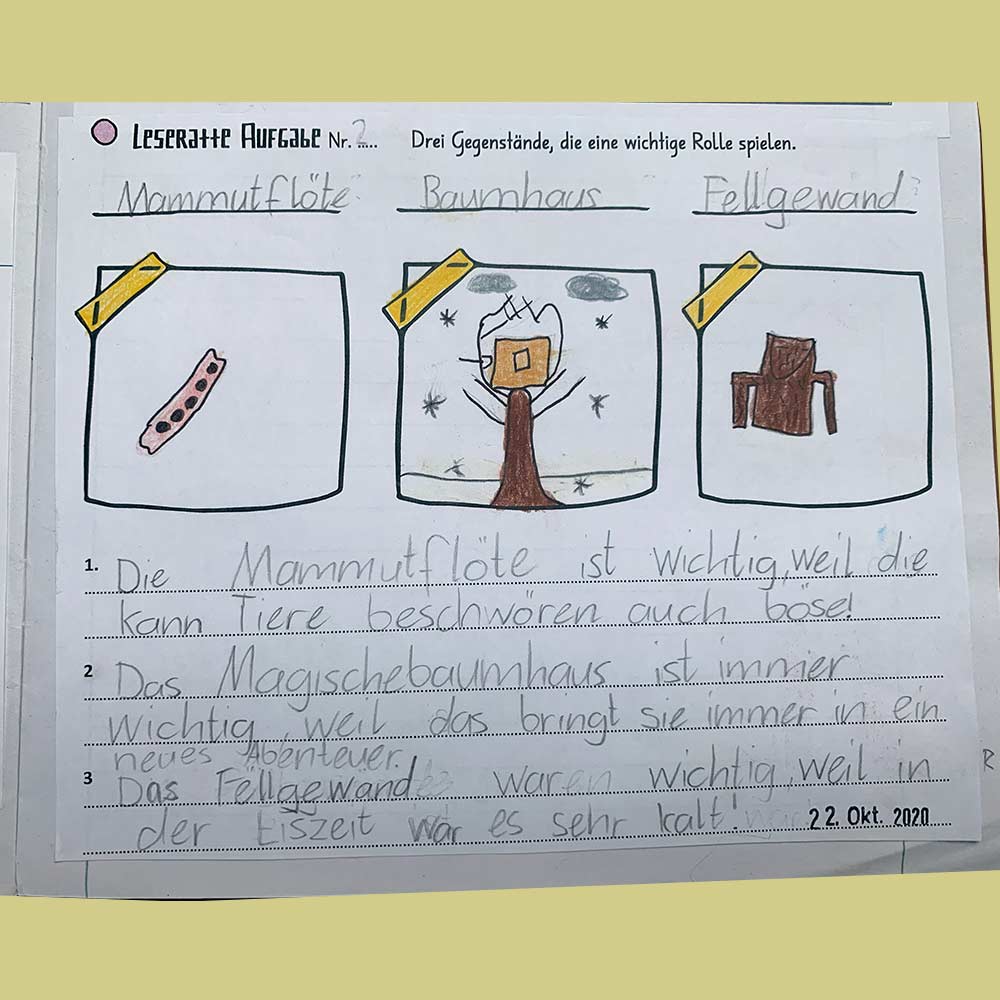 Leseratte Aufgabe Nr. 2 Drei Gegenstände, die eine wichtige Rolle spielen.
Mammutflöte Baumhaus Fellgewand
1. Die Mammutflöte ist wichtig, weil die
kann Tiere beschwören auch böse!
2 Das Magischebaumhaus ist immer
wichtig, weil das bringt sie immer in ein
neues Abenteuer.
3 Das Fellgewand war wichtig, weil in
der Eiszeit war es sehr kalt! 22. Okt. 2020
R